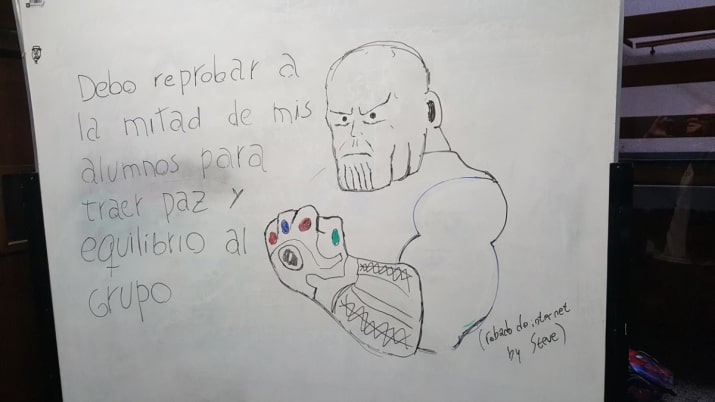 Debo reprobar a
la mitad de mis
alumnos para
traer paz y
equilibrio al
Grupo
(robado de internet
by Steve)